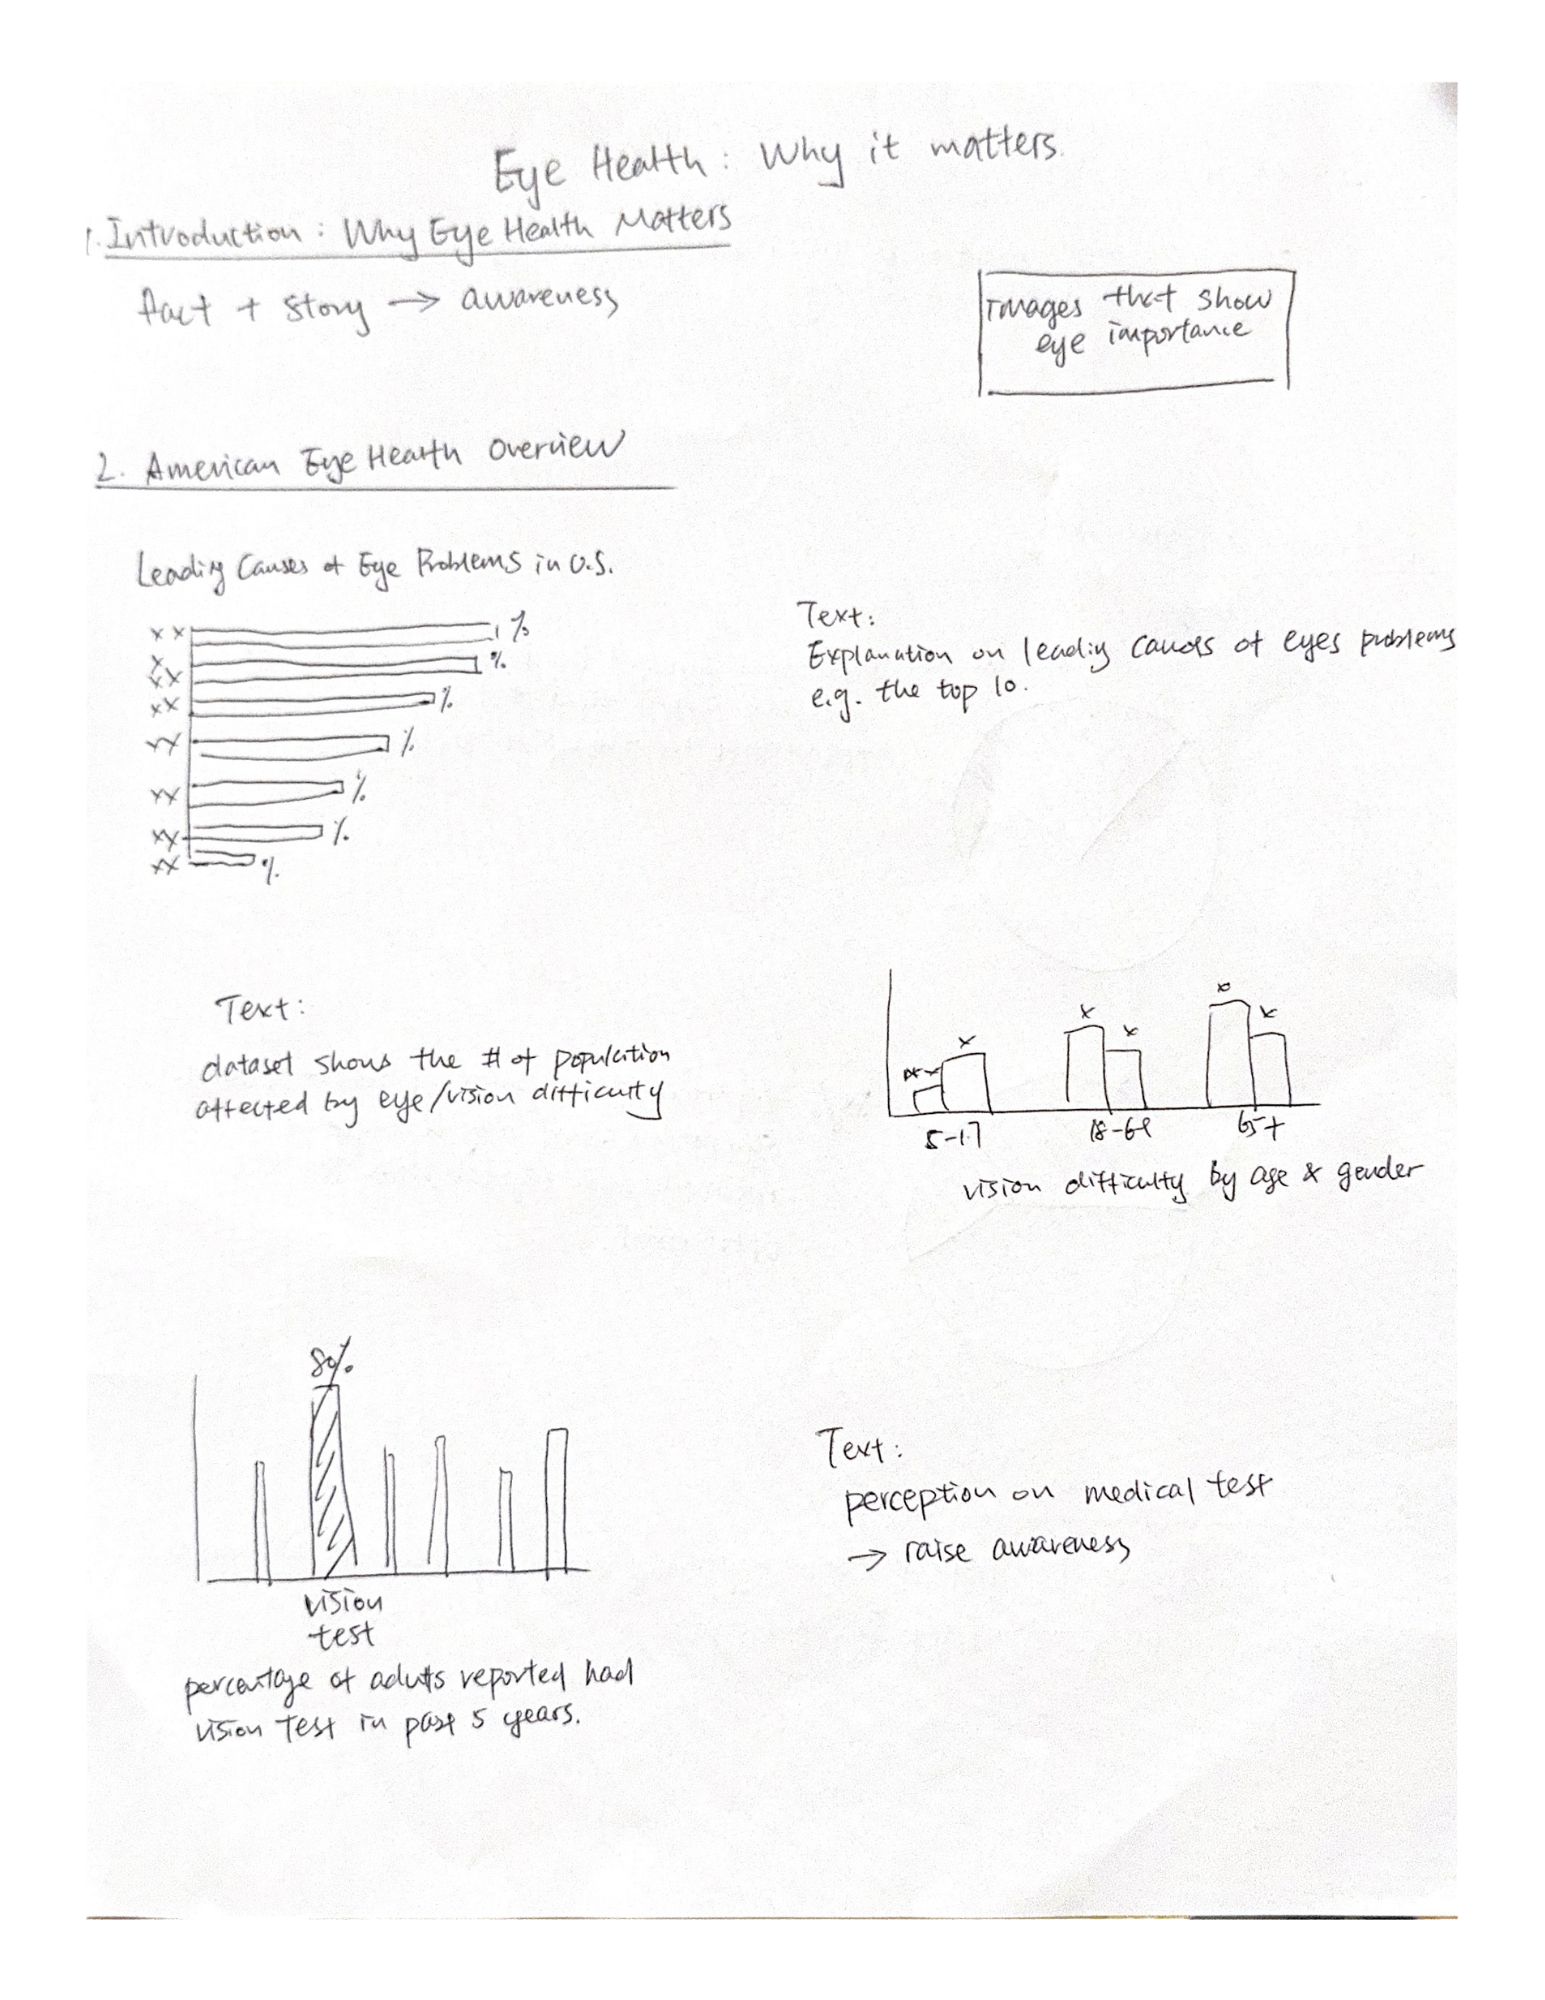 Eye Health: Why it matters.
1. Introduction: Why Eye Health Matters
fact + story → awareness
Images that show
eye importance
2. American Eye Health Overview
Leading Causes of Eye Problems in U.S.
xx %
xx %
xx %
xx %
xx %
xx %
xx %
Text:
Explanation on leading causes of eyes problems
e.g. the top 10.
Text:
dataset shows the # of population
affected by eye/vision difficulty
x x x x x
5-17 18-64 65+
vision difficulty by age & gender
80%
vision
test
percentage of adults reported had
vision test in past 5 years.
Text:
perception on medical test
→ raise awareness